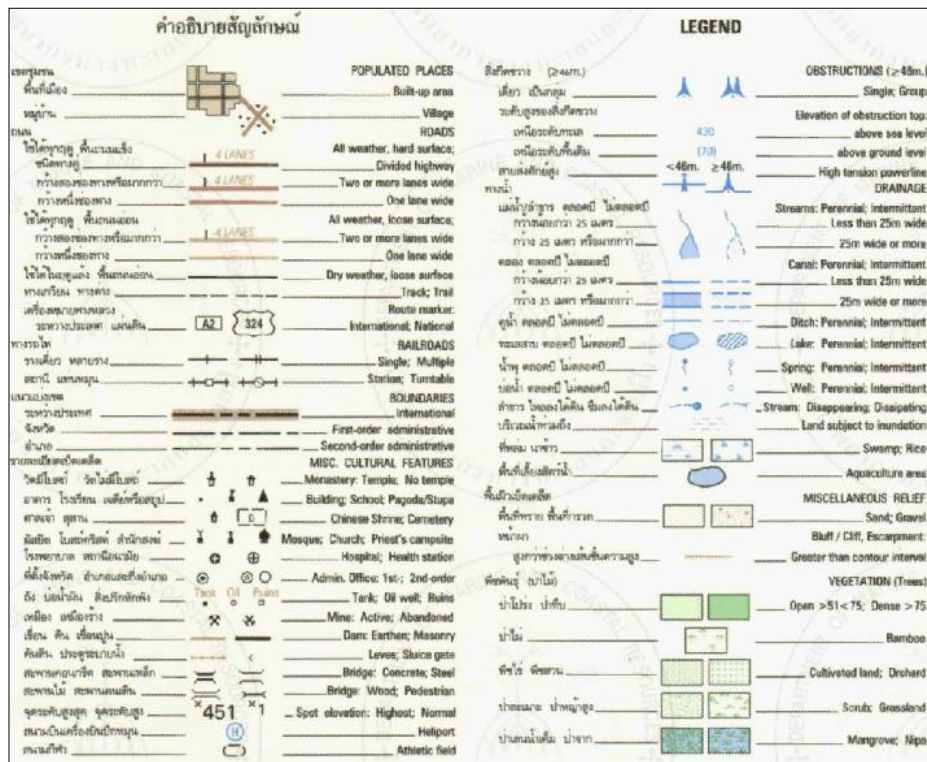 คำอธิบายสัญลักษณ์
เขตชุมชน POPULATED PLACES
พื้นที่เมือง Built-up area
หมู่บ้าน Village
ถนน ROADS
ใช้ได้ทุกฤดู พื้นถนนแข็ง 4 LANES All weather, hard surface;
ชนิดทางคู่ Divided highway
กว้างสองช่องทางหรือมากกว่า 4 LANES Two or more lanes wide
กว้างหนึ่งช่องทาง One lane wide
ใช้ได้ทุกฤดู พื้นถนนอ่อน All weather, loose surface;
กว้างสองช่องทางหรือมากกว่า 4 LANES Two or more lanes wide
กว้างหนึ่งช่องทาง One lane wide
ใช้ได้ในฤดูแล้ง พื้นถนนอ่อน Dry weather, loose surface
ทางเกวียน ทางต่าง Track; Trail
เครื่องหมายทางหลวง Route marker:
ระหว่างประเทศ แผ่นดิน A2 324 International; National
ทางรถไฟ RAILROADS
รางเดี่ยว หลายราง Single; Multiple
สถานี แท่นหมุน Station; Turntable
แนวแบ่งเขต BOUNDARIES
ระหว่างประเทศ International
จังหวัด First-order administrative
อำเภอ Second-order administrative
รายละเอียดเบ็ดเตล็ด MISC. CULTURAL FEATURES
วัดมีโบสถ์ วัดไม่มีโบสถ์ Monastery: Temple; No temple
อาคาร โรงเรียน เจดีย์หรือสถูป Building; School; Pagoda/Stupa
ศาลเจ้า สุสาน Chinese Shrine; Cemetery
มัสยิด โบสถ์คริสต์ สำนักสงฆ์ Mosque; Church; Priest's campsite
โรงพยาบาล สถานีอนามัย Hospital; Health station
ที่ตั้งจังหวัด อำเภอและกิ่งอำเภอ Admin. Office: 1st-; 2nd-order
ถัง บ่อน้ำมัน สิ่งปรักหักพัง Tank Oil Ruins Tank; Oil well; Ruins
เหมือง เหมืองร้าง Mine: Active; Abandoned
เขื่อน ดิน เขื่อนปูน Dam: Earthen; Masonry
คันดิน ประตูระบายน้ำ Leves; Sluice gate
สะพานคอนกรีต สะพานเหล็ก Bridge: Concrete; Steel
สะพานไม้ สะพานคนเดิน Bridge: Wood; Pedestrian
จุดระดับสูงสุด จุดระดับสูง 451 1 Spot elevation: Highest; Normal
สนามบินเครื่องบินปีกหมุน H Heliport
สนามกีฬา Athletic field
LEGEND
สิ่งกีดขวาง (≥46m.) OBSTRUCTIONS (≥46m.)
เดี่ยว เป็นกลุ่ม Single; Group
ระดับสูงของสิ่งกีดขวาง Elevation of obstruction top:
เหนือระดับทะเล 430 above sea level
เหนือระดับพื้นดิน (70) above ground level
สายส่งศักย์สูง <46m. ≥46m. High tension powerline
ทางน้ำ DRAINAGE
แม่น้ำ/ลำธาร ตลอดปี ไม่ตลอดปี Streams: Perennial; Intermittent
กว้างน้อยกว่า 25 เมตร Less than 25m wide
กว้าง 25 เมตร หรือมากกว่า 25m wide or more
คลอง ตลอดปี ไม่ตลอดปี Canal: Perennial; Intermittent
กว้างน้อยกว่า 25 เมตร Less than 25m wide
กว้าง 25 เมตร หรือมากกว่า 25m wide or more
คูน้ำ ตลอดปี ไม่ตลอดปี Ditch: Perennial; Intermittent
ทะเลสาบ ตลอดปี ไม่ตลอดปี Lake: Perennial; Intermittent
น้ำพุ ตลอดปี ไม่ตลอดปี Spring: Perennial; Intermittent
บ่อน้ำ ตลอดปี ไม่ตลอดปี Well: Perennial; Intermittent
ลำธาร ไหลลงใต้ดิน ซึมลงใต้ดิน Stream: Disappearing; Dissipating
บริเวณน้ำท่วมถึง Land subject to inundation
ที่หล่ม นาข้าว Swamp; Rice
พื้นที่เลี้ยงสัตว์น้ำ Aquaculture area
พื้นผิวเบ็ดเตล็ด MISCELLANEOUS RELIEF
พื้นที่ทราย พื้นที่กรวด Sand; Gravel
หน้าผา Bluff / Cliff, Escarpment:
สูงกว่าช่วงต่างเส้นชั้นความสูง Greater than contour interval
พืชพันธุ์ (ป่าไม้) VEGETATION (Trees)
ป่าโปร่ง ป่าทึบ Open >51<75; Dense >75
ป่าไผ่ Bamboo
พืชไร่ พืชสวน Cultivated land; Orchard
ป่าละเมาะ ป่าหญ้าสูง Scrub; Grassland
ป่าเลนน้ำเค็ม ป่าจาก Mangrove; Nipa